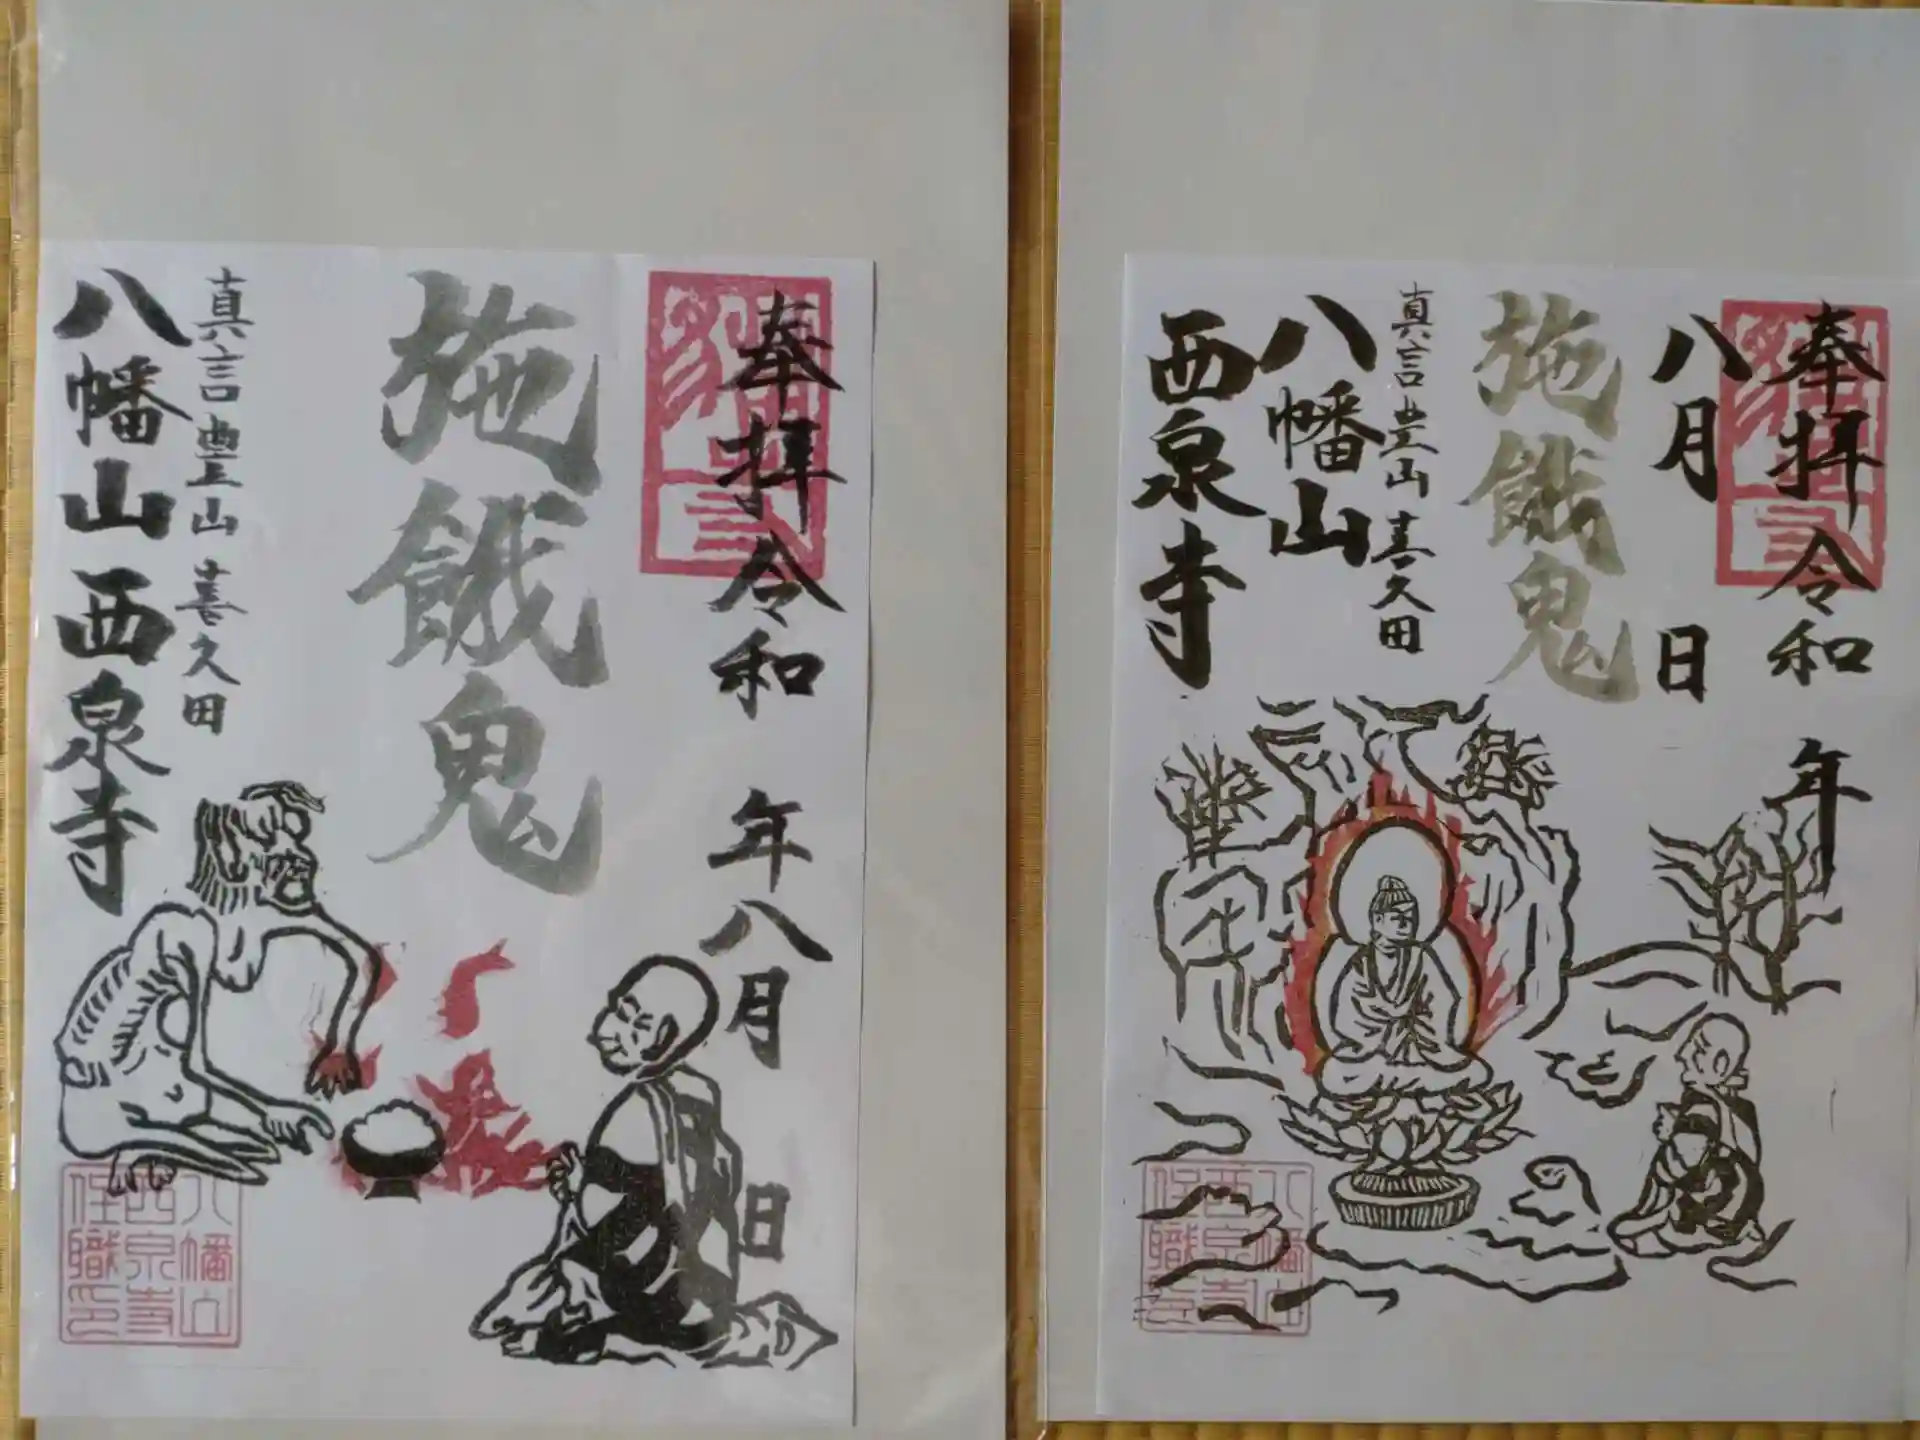 奉拝 令和 年八月 日
施餓鬼
真言豊山 喜久田
八幡山 西泉寺
八幡山
西泉寺
住職印
奉拝 令和 年
八月 日
施餓鬼
真言豊山 喜久田
八幡山
西泉寺
八幡山
西泉寺
住職印